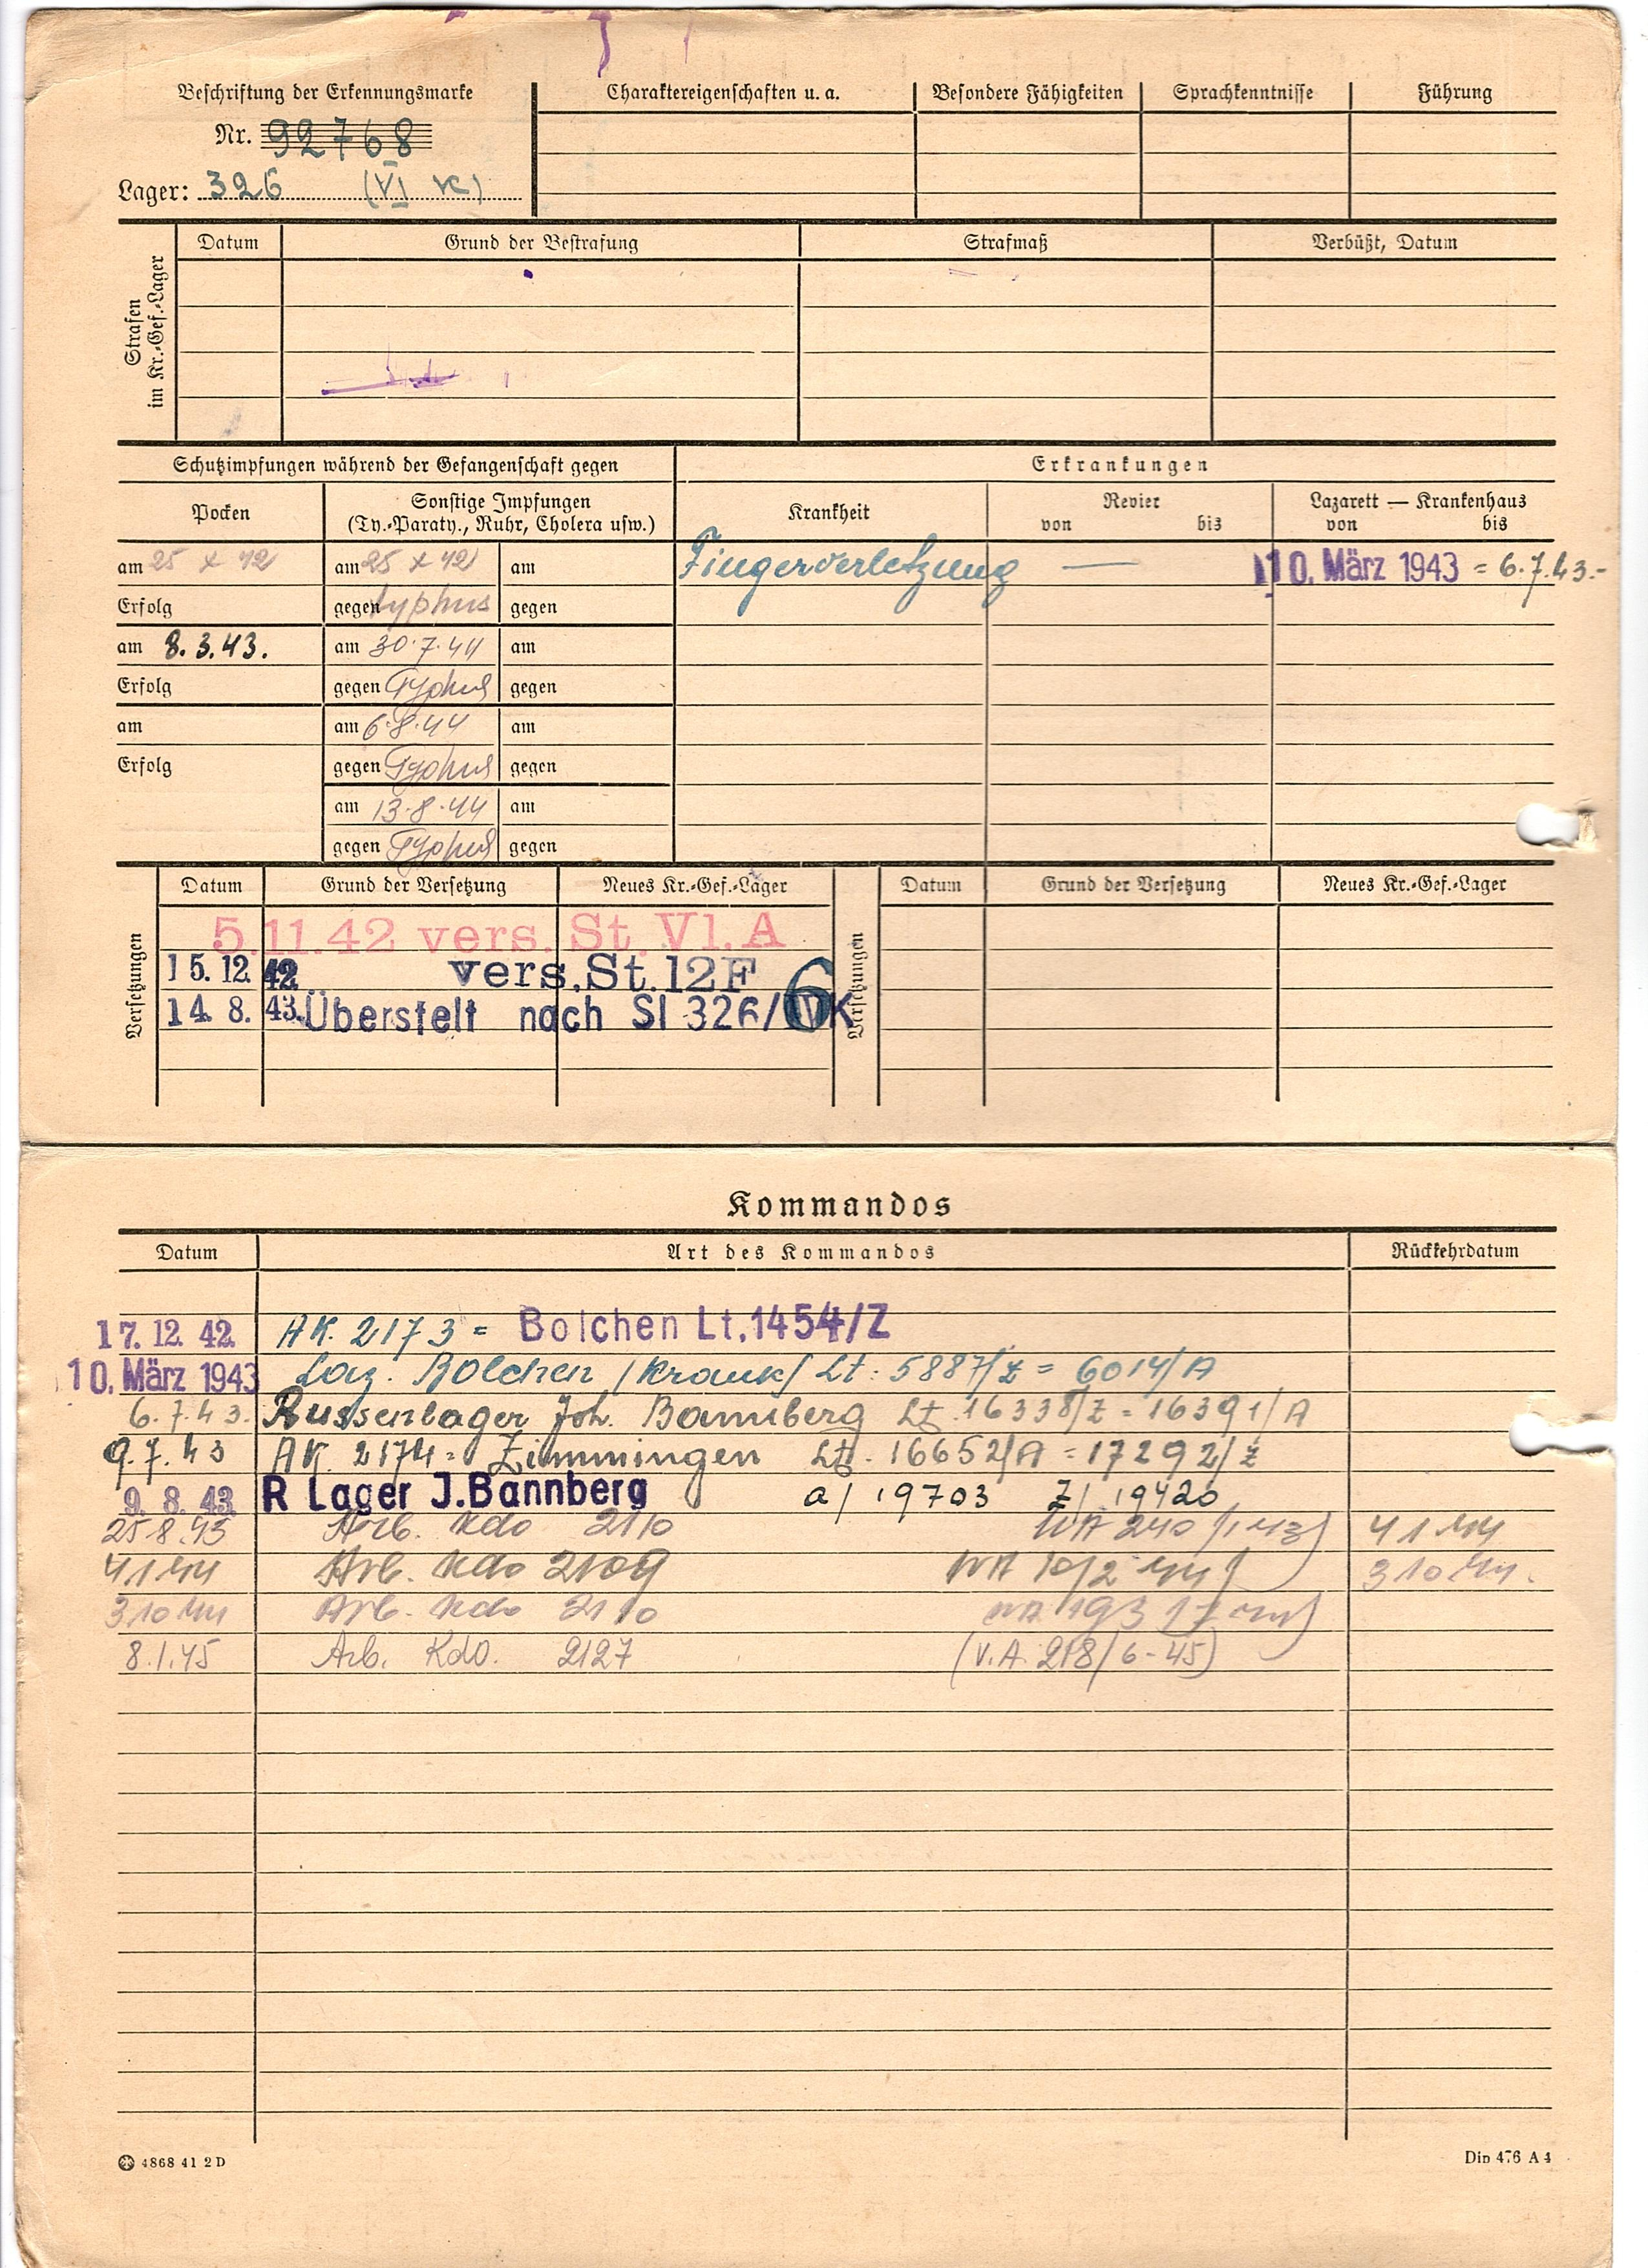 Beschriftung der Erkennungsmarke
Nr. 92768
Lager: 326 (VI K)
Charaktereigenschaften u. a.
Besondere Fähigkeiten
Sprachkenntnisse
Führung
Strafen im Kr.-Gef.-Lager
Datum
Grund der Bestrafung
Strafmaß
Verbüßt, Datum
Schutzimpfungen während der Gefangenschaft gegen
Erkrankungen
Pocken
Sonstige Impfungen
(Ty.-Paraty., Ruhr, Cholera usw.)
Krankheit
Revier
von bis
Lazarett — Krankenhaus
von bis
am 25 X 42 am 25 X 42 am
Fingerverletzung — 10. März 1943 = 6.7.43.-
Erfolg gegen typhus gegen
am 8.3.43. am 30.7.44 am
Erfolg gegen Typhus gegen
am am 6.8.44 am
Erfolg gegen Typhus gegen
am 13.8.44 am
gegen Typhus gegen
Versetzungen
Datum Grund der Versetzung Neues Kr.-Gef.-Lager
5.11.42 vers. St. Vl. A
15. 12. 42. vers. St. 12F
14. 8. 43. Überstelt nach Sl 326/ 6 K
Versetzungen
Datum Grund der Versetzung Neues Kr.-Gef.-Lager
Kommandos
Datum Art des Kommandos Rückkehrdatum
17. 12. 42. AK. 2173 = Bolchen Lt. 1454/Z
10. März 1943 Laz. Bolchen /krank/ Lt: 5887/Z = 6014/A
6.7.43. Russenlager Joh. Bannberg Lt. 16338/Z = 16391/A
9.7.43 AK. 2174 = Zimmingen Lt. 16652/A = 17292/Z
9. 8. 43. R Lager J.Bannberg a/ 19703 Z/ 19420
25.8.43 Arb. Kdo 2110 4 1 44
4 1 44 Arb. Kdo 2109 3 10 44.
3 10 44 Arb. Kdo 2110
8.1.45 Arb. Kdo. 2127 (V.A. 218/6-45)
4868 41 2 D
Din 476 A 4